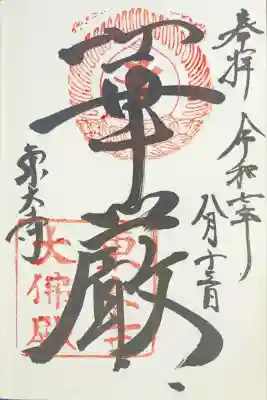 奉拝 令和七年
八月十三日
華厳
東大寺
東大寺
大佛殿